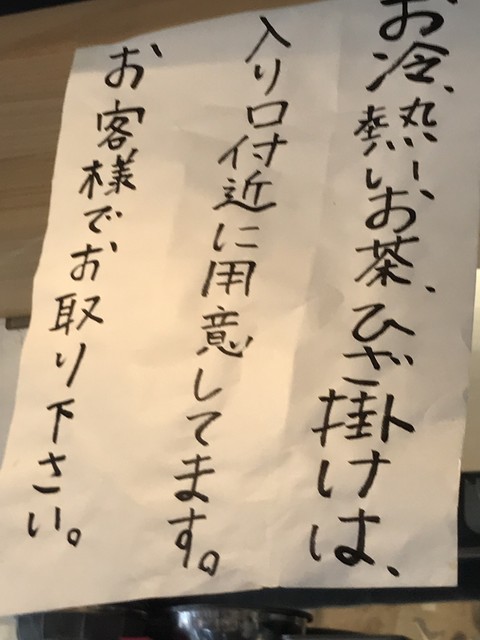 お冷、熱いお茶、ひざ掛けは、
入り口付近に用意してます。
お客様でお取り下さい。